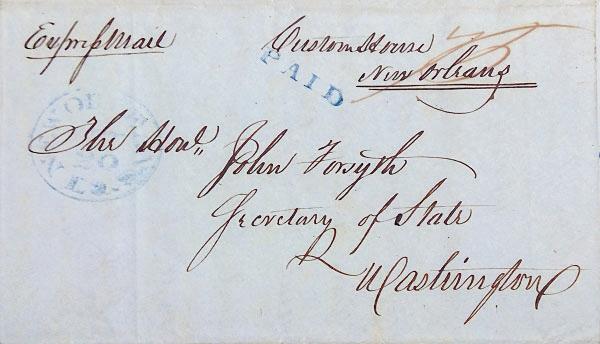 Express Mail
Custom House
New Orleans
PAID
The Honl,,
John Forsyth
Secretary of State
Washington